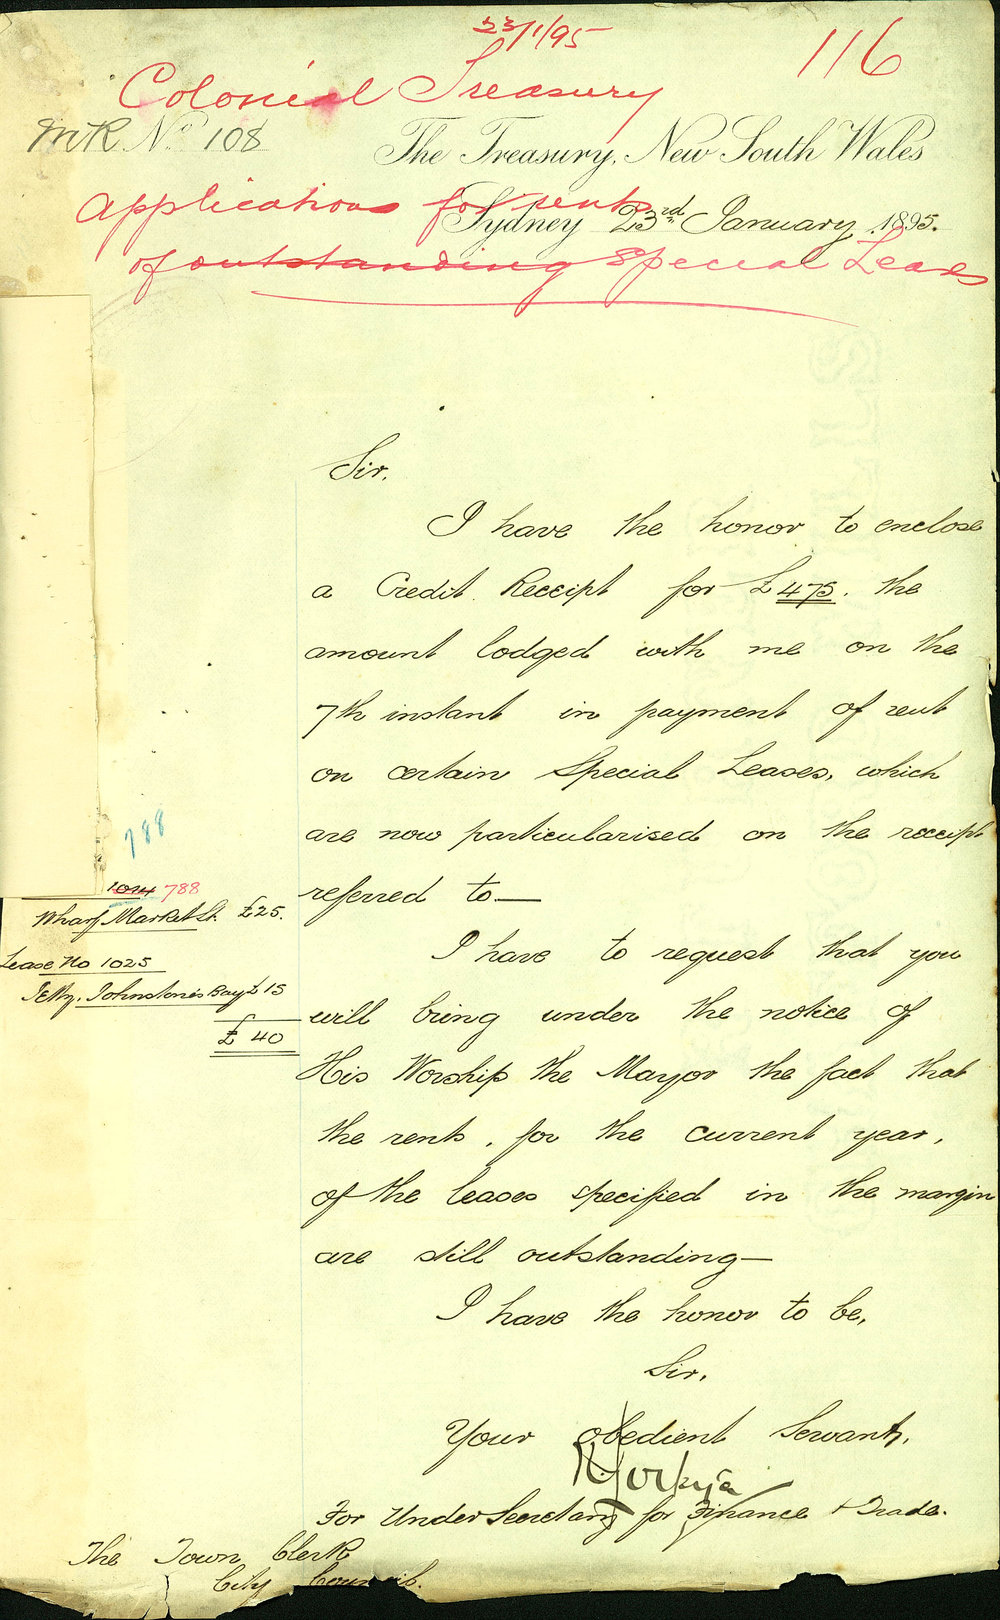 23/1/95
116
Colonial Treasury
MR No 108
The Treasury, New South Wales
Applications for rents
Sydney 23rd January 1895.
of outstanding Special Leases
Sir,
I have the honor to enclose
a Credit Receipt for £475. the
amount lodged with me on the
7th instant in payment of rent
on certain Special Leases, which
are now particularised on the receipt
referred to—
788
1014 788
Wharf Market St. £25.
Lease No 1025
Jetty, Johnstones Bay £15
£40
I have to request that you
will bring under the notice of
His Worship the Mayor the fact that
the rents, for the current year,
of the leases specified in the margin
are still outstanding—
I have the honor to be,
Sir,
Your obedient Servant,
For Under Secretary for Finance & Trade.
The Town Clerk
City Council.